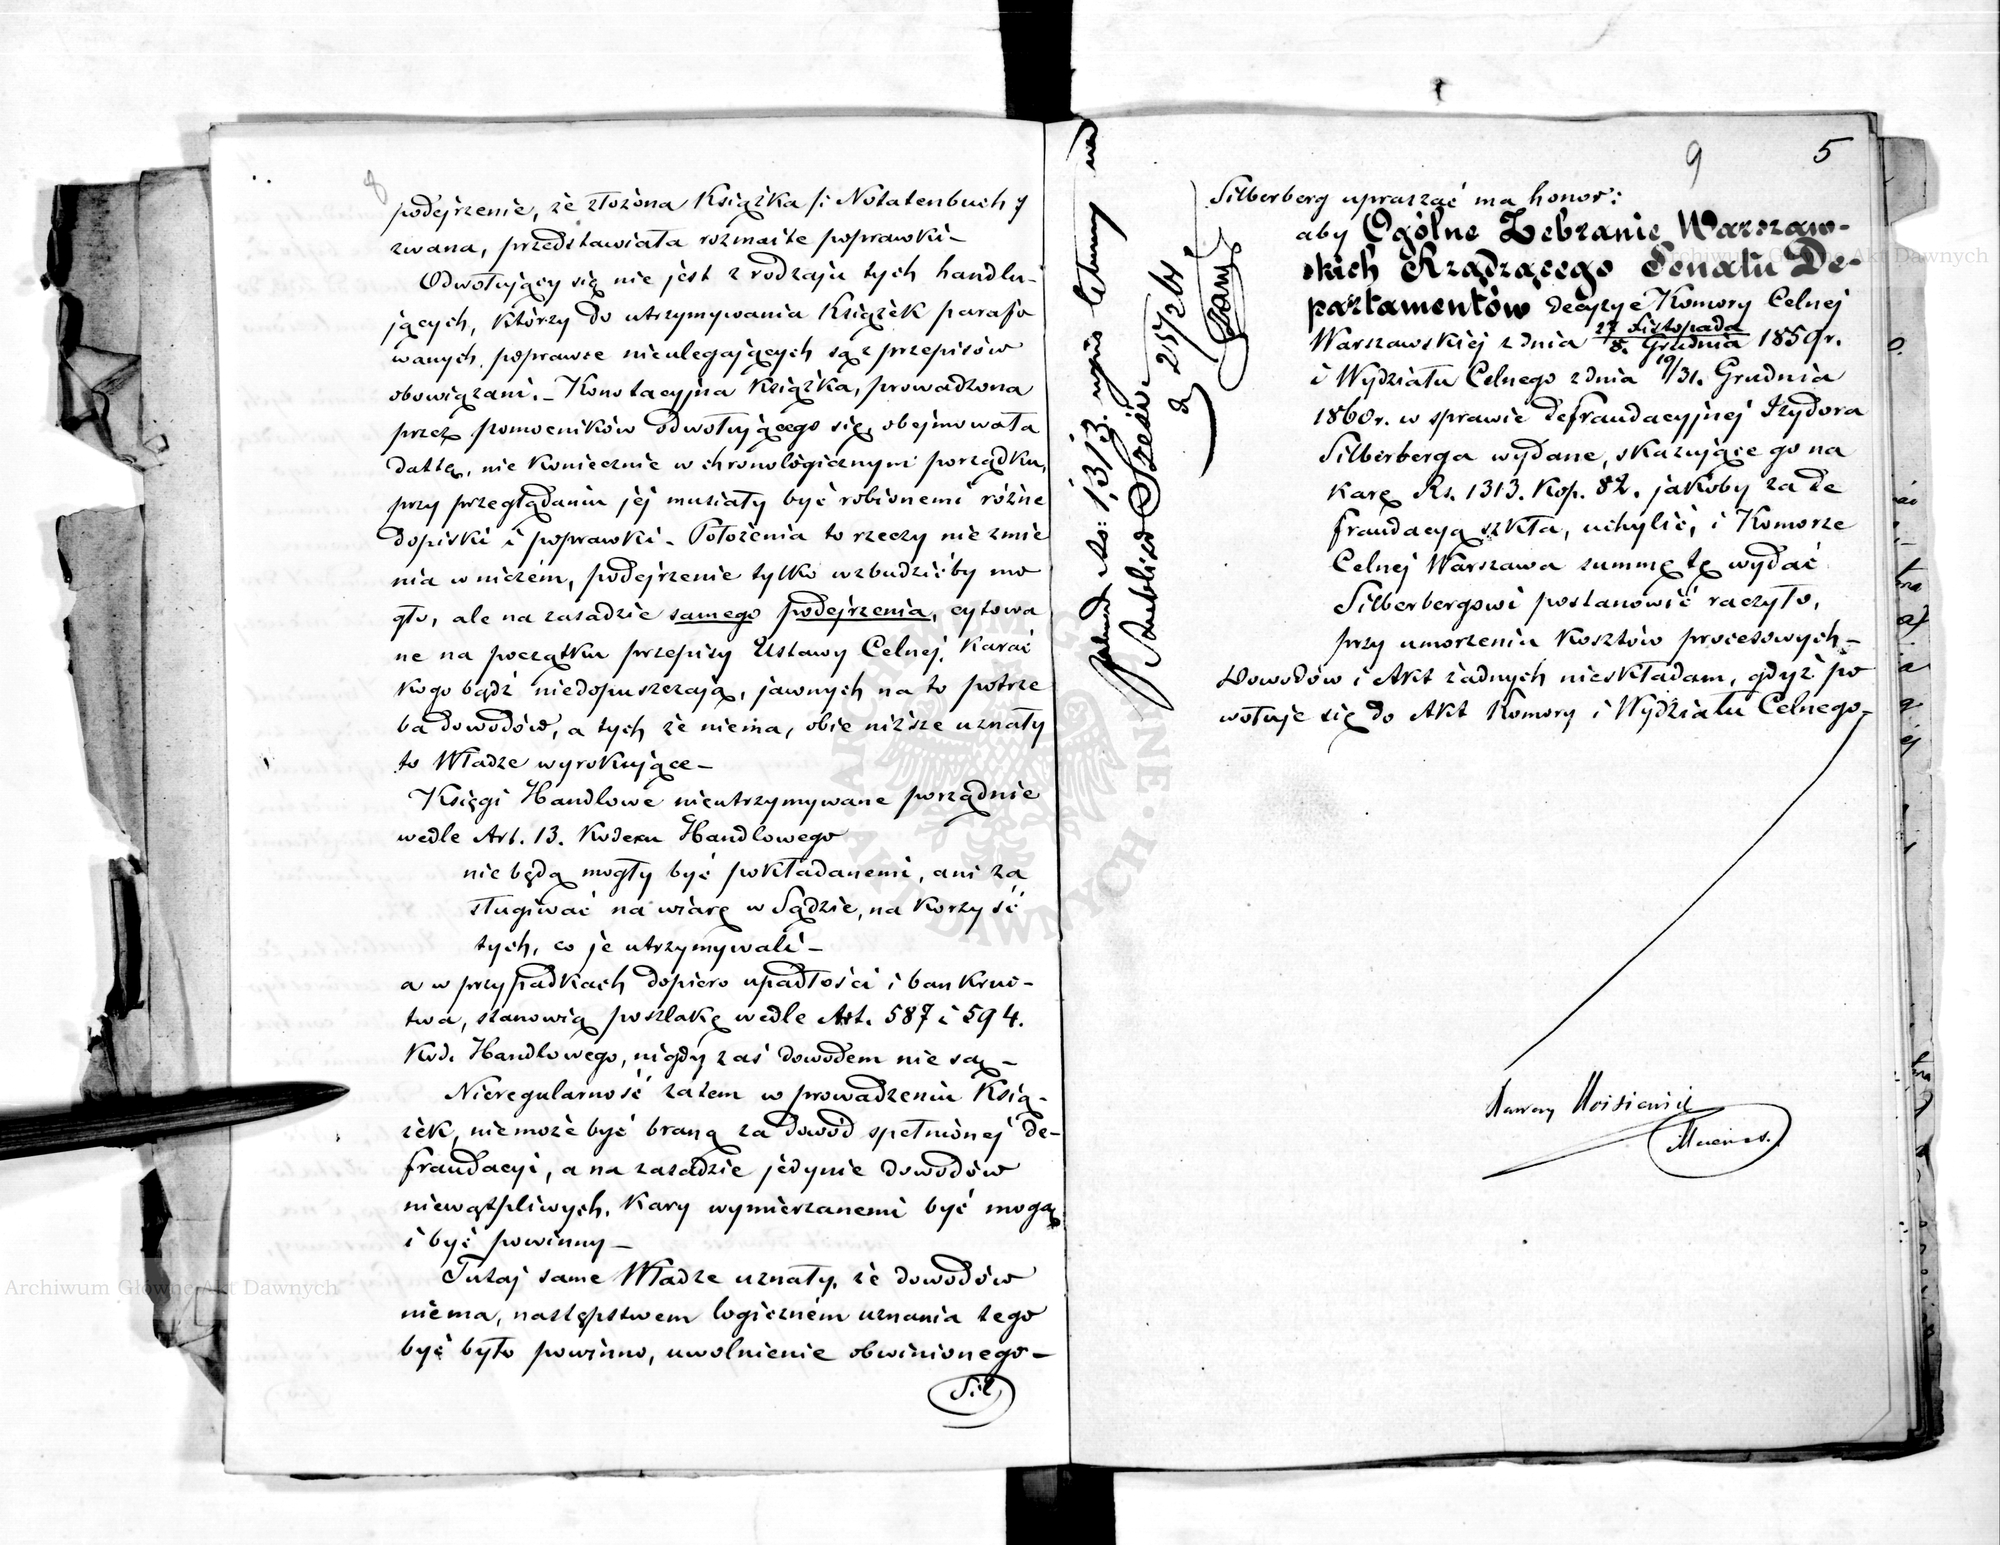 8
podejrzenie, że złożona Książka /: Notatenbuch :/
zwana, przedstawiała rozmaite poprawki –
Odwołujący się nie jest z rodzaju tych handlu-
jących, którzy do utrzymywania Książek parafo
wanych, poprawce nieulegających są z przepisów
obowiązani. – Konotacyjna Książka, prowadzona
przez pomocników odwołującego się, obejmowała
dattę, nie koniecznie w chronologicznym porządku,
przy przeglądaniu jej musiały być robionemi różne
dopiski i poprawki – Położenia to rzeczy nie zmie
nia w niczém, podejrzenie tylko wzbudzićby mo
gło, ale na zasadzie samego podejrzenia, cytowa
ne na początku przepisy Ustawy Celnej, karać
kogo bądź niedopuszczają, jawnych na to potrze
ba dowodów, a tych że niema, obie niższe uznały
to Władze wyrokujące –
Księgi Handlowe nieutrzymywane porządnie
wedle Art. 13. Kodexu Handlowego
nie będą mogły być pokładanemi, ani za
sługiwać na wiarę w Sądzie, na korzyść
tych, co je utrzymywali –
a w przypadkach dopiero upadłości i bankruc-
twa, stanowią poszlakę wedle Art. 587 i 594.
Kod. Handlowego, nigdy zaś dowodem nie są –
Nieregularność zatem w prowadzeniu Ksią-
żek, niemoże być braną za dowód spełnionej de-
fraudacyi, a na zasadzie jedynie dowodów
niewątpliwych, kary wymierzanemi być mogą
i być powinny –
Tutaj same Władze uznały, że dowodów
niema, następstwem logiczném uznania tego
być było powinno, uwolnienie obwinionego –
Sil
9
5
Silberberg upraszać ma honor:
aby Ogólne Zebranie Warszaw-
skich Rządzącego Senatu De-
partamentów decyzye Komory Celnej
Warszawskiej z dnia 27 Listopada / 8. Grudnia 1859 r.
i Wydziału Celnego z dnia 19/31. Grudnia
1860 r. w sprawie defraudacyjnej Izydora
Silberberga wydane, skazujące go na
karę Rs. 1313. Kop. 82. jakoby za de
fraudacyą szkła, uchylić, i Komorze
Celnej Warszawa summę tę wydać
Silberbergowi postanowić raczyło,
przy umorzeniu kosztów procesowych –
Dowodów i Akt żadnych nieskładam, gdyż po
wołuje się do Akt Komory i Wydziału Celnego –
Archiwum Główne Akt Dawnych
Archiwum Główne Akt Dawnych
ARCHIWUM GŁÓWNE · AKT DAWNYCH ·